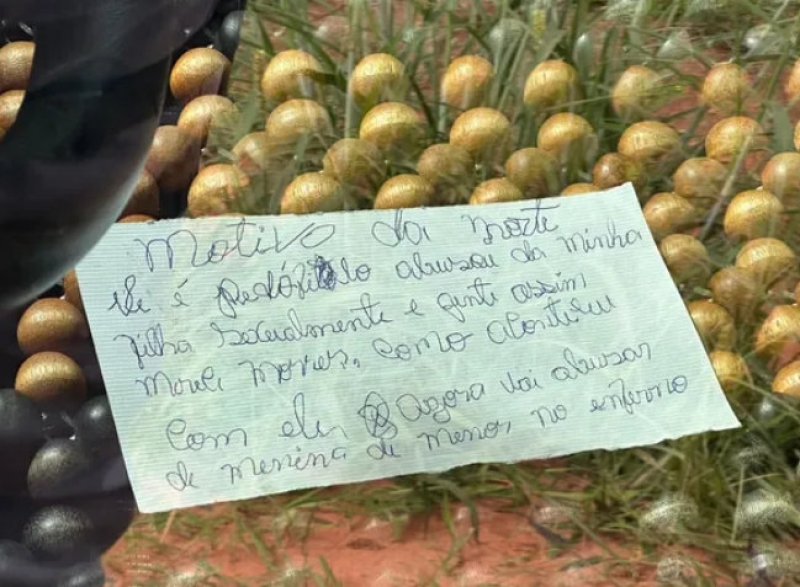 Motivo da morte
ele é pedófilo abusou da minha
filha sexualmente e gente assim
merece morrer. como aconteceu
com ele, Agora vai abusar
de menina de menor no enferno